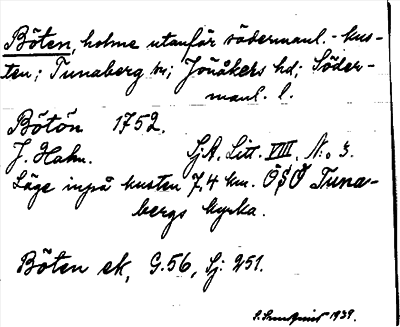 Böten, holme utanför södermanl.-kus-
ten; Tunaberg sn; Jönåkers hd; Söder-
manl. l.
Bötön 1752.
J. Hahn. SjA. Litt. VIII, N:o 3.
Läge inpå kusten 7,4 km. ÖSÖ Tuna-
bergs kyrka.
Böten ek, G.56, Sj: 251.
1939.